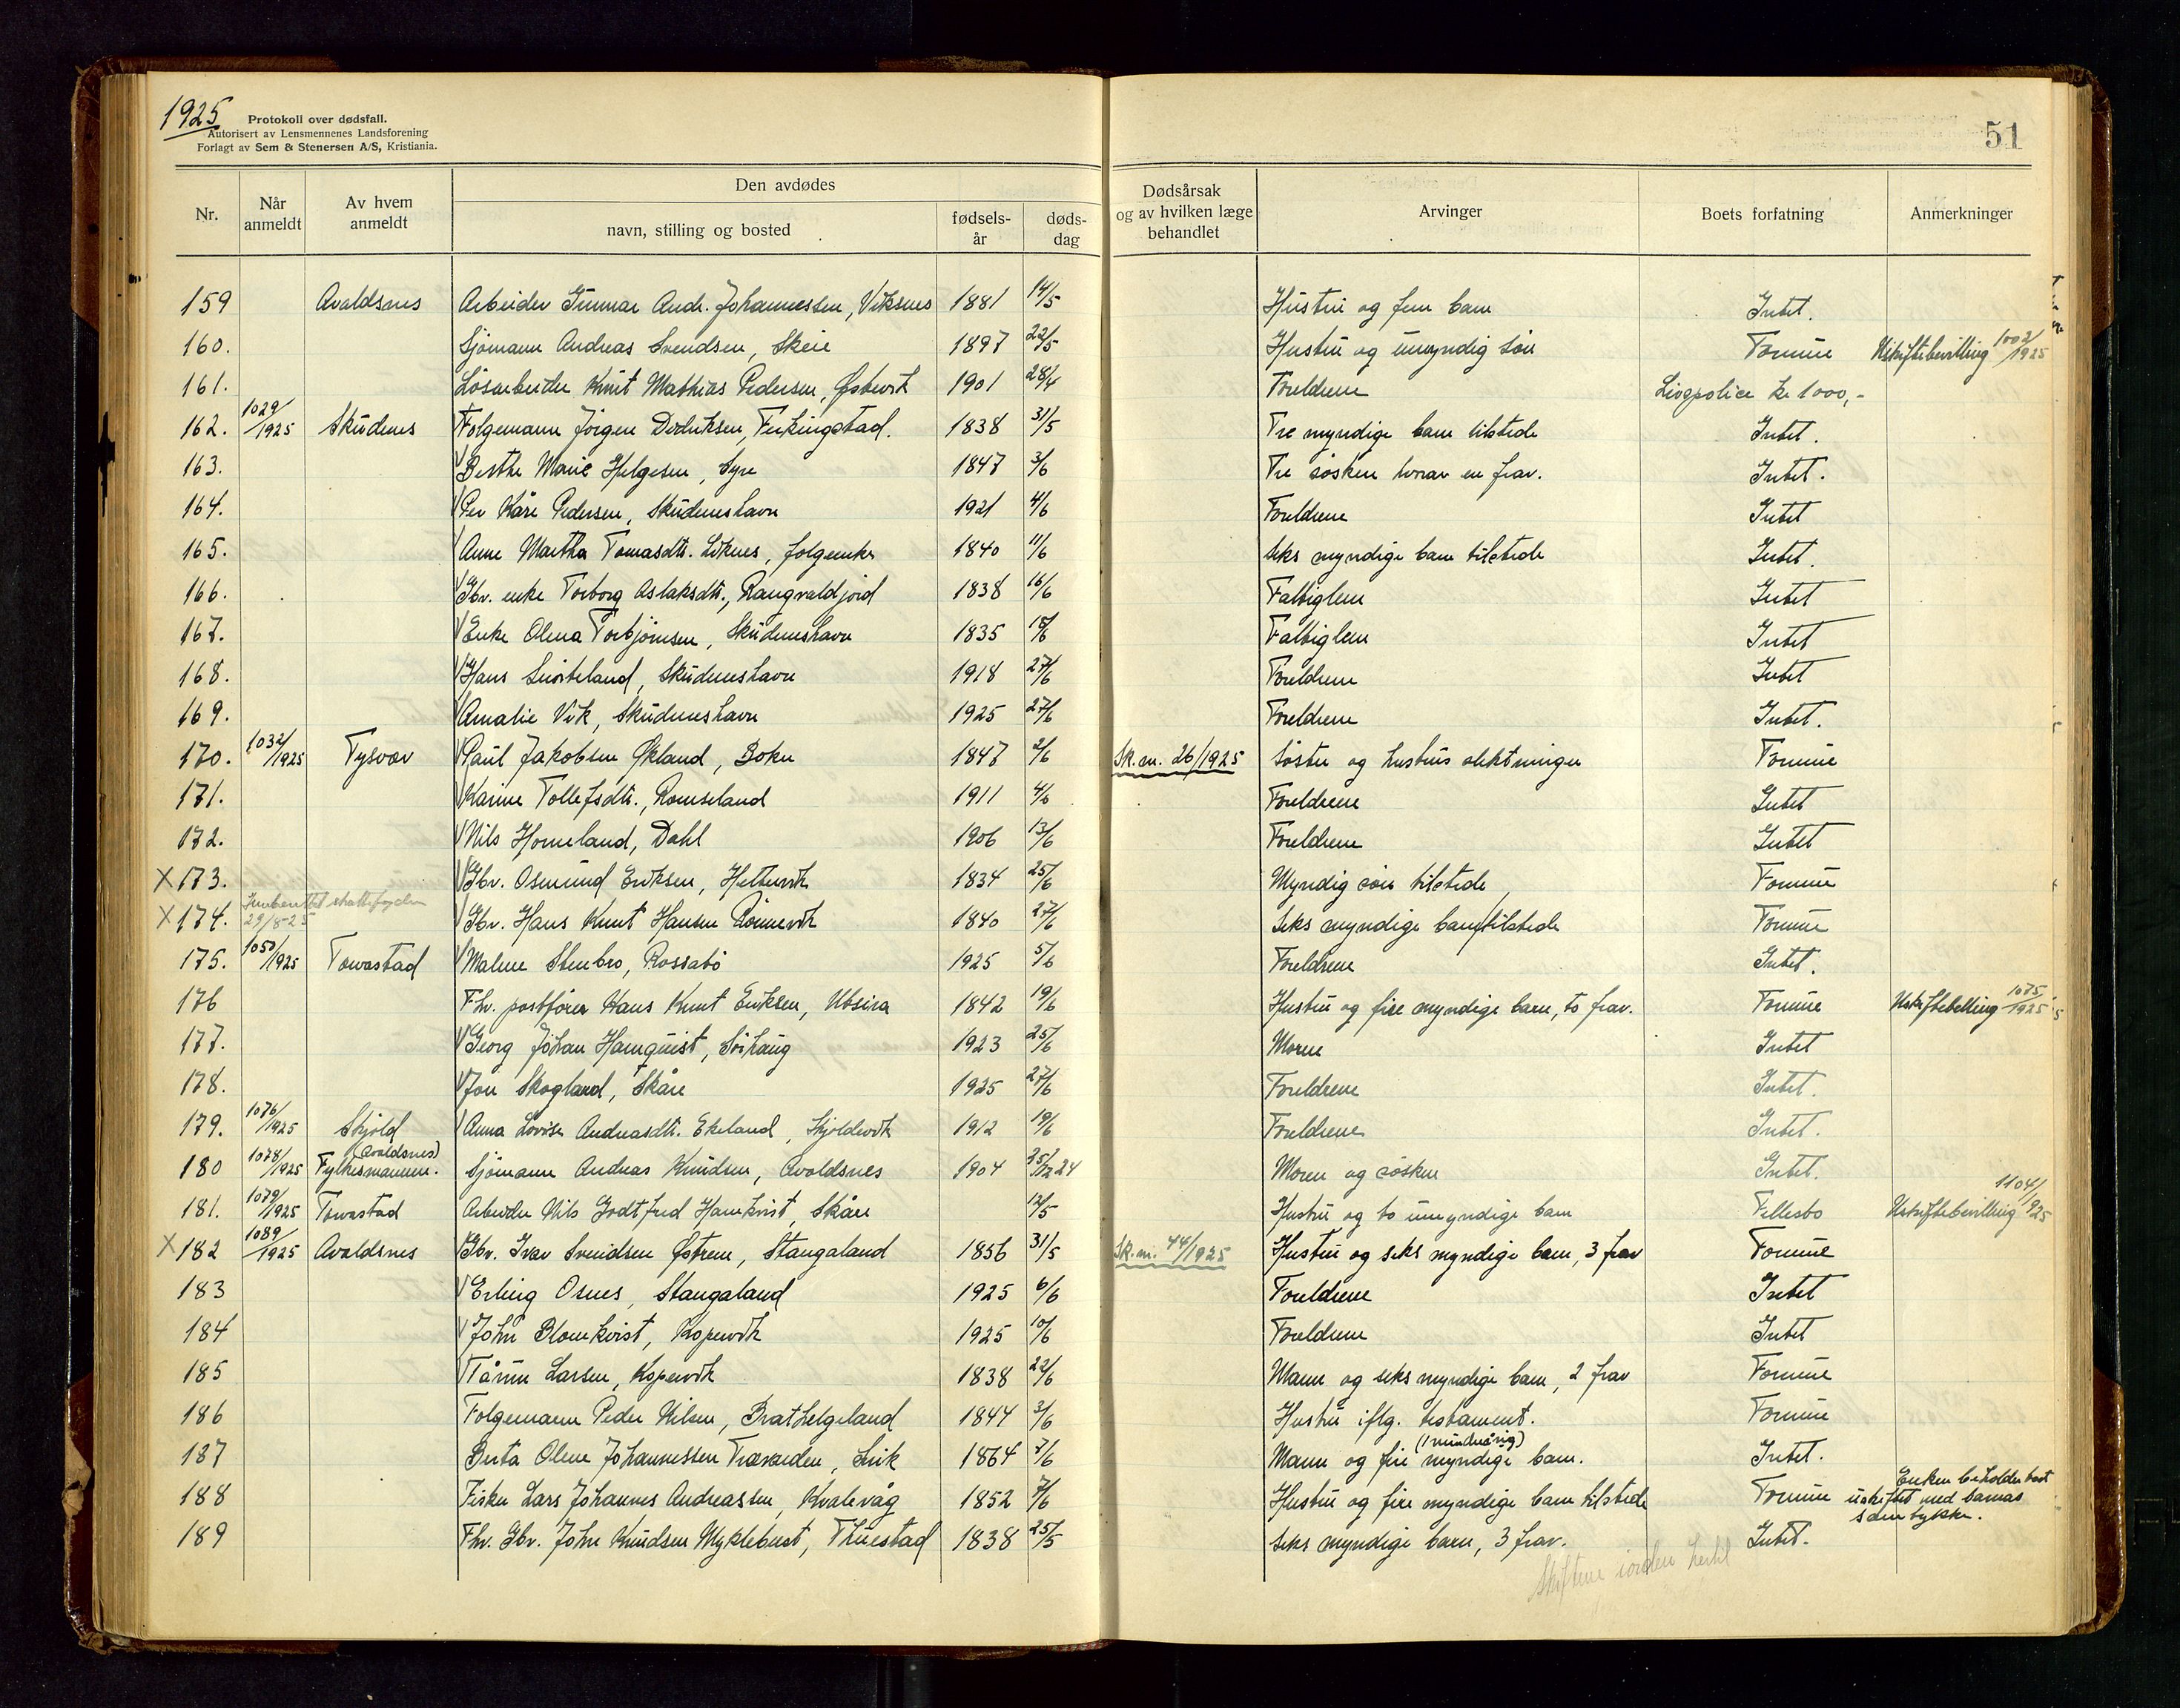 1925
Protokoll over dødsfall.
Autorisert av Lensmennenes Landsforening
Forlagt av Sem & Stenersen A/S, Kristiania.
51
Nr. Når anmeldt Av hvem anmeldt Den avdødes navn, stilling og bosted fødsels-år døds-dag Dødsårsak og av hvilken læge behandlet Arvinger Boets forfatning Anmerkninger
159 Avaldsnes Arbeider Gunnar Andr. Johannessen, Viksnes 1881 14/5 Hustru og fem barn Intet.
160. Sjömann Andreas Svendsen, Skeie 1897 22/5 Hustru og umyndig sön Formue Uskiftebevilling 1002/1925
161. Lösarbeider Knut Mathias Pedersen, Østevik 1901 28/4 Foreldrene Livspolice kr 1000,-
162. 1029/1925 Skudenes Folgemann Jörgen Dediksen, Ferkingstad. 1838 31/5 Tre myndige barn tilstede Intet.
163. Berthe Marie Helgesen, Syre 1847 3/6 Tre sösken hvorav en frav. Intet.
164. Per Kåre Pedersen, Skudeneshavn 1921 4/6 Foreldrene Intet
165. Anne Martha Tomasdtr. Liknes, folgeenke 1840 11/6 Seks myndige barn tilstede Intet.
166. Gbr. enke Torborg Aslaksdtr., Rangvaldjord 1838 16/6 Fattiglem Intet
167. Enke Olena Torbjörnsen, Skudeneshavn 1835 18/6 Fattiglem Intet
168. Hans Sivrteland, Skudeneshavn 1918 27/6 Foreldrene Intet
169. Amalie Vik, Skudeneshavn 1925 27/6 Foreldrene Intet.
170. 1032/1925 Tysvær Paul Jakobsen Økland, Bokn 1847 2/6 Sk.m. 26/1925 Söster og hustrus slektninger Formue
171. Karine Tollefsdtr., Romseland 1911 4/6 Foreldrene Intet
172. Nils Homeland, Dahl 1906 13/6 Foreldrene Intet
X 173. Gbr. Osmund Eriksen, Hettervik 1834 25/6 Myndig sön tilstede Formue
X 174. 29/8-25 Gbr. Hans Knut Hansen Rönnevik 1840 27/6 Seks myndige barn tilstede Formue
175. 1050/1925 Torvastad Malene Stenbro, Rossabö 1925 5/6 Foreldrene Intet.
176 Fhv. postförer Hans Knut Eriksen, Utsira 1842 19/6 Hustru og fire myndige barn, to frav. Formue Uskiftebevilling 1075/1925
177. Georg Johan Hamquist, Sörhaug 1923 25/6 Moren Intet
178. Jon Skogland, Skåre 1925 27/6 Foreldrene Intet.
179. 1076/1925 Skjold Anna Lovise Andreasdtr. Ekeland, Skjoldevik 1912 19/6 Foreldrene Intet.
180 1078/1925 Fylkesmannen. (Avaldsnes) Sjömann Andreas Knudsen, Avaldsnes 1904 25/12 24 Moren og sösken Intet.
181. 1079/1925 Torvastad Arbeider Nils Godtfred Hamkvist, Skåre 12/5 Hustru og to umyndige barn Fellesbo Uskiftebevilling 1104/1925
X 182 1089/1925 Avaldsnes Gbr. Ivar Svendsen Østrem, Stangaland 1856 31/5 Sk.m. 44/1925 Hustru og seks myndige barn, 3 frav Formue
183 Erling Osnes, Stangaland 1925 6/6 Foreldrene Intet
184 John Blomkvist, Kopervik 1925 10/6 Foreldrene Intet
185 Larsen, Kopervik 1838 22/6 Mann og seks myndige barn, 2 frav Formue
186 Folgemann Peder Nilsen, Brathelgeland 1844 3/6 Hustru iflg. testament. Formue
187 Berta Olene Johannessen, Sevik 1864 7/6 Mann og fire myndige barn. (1 mindreårig) Intet.
188 Fisker Lars Johannes Andreassen, Kvalevåg 1852 7/6 Hustru og fire myndige barn tilstede Formue Enken beholder boet uskiftet med barnas samtykke.
189 Fhv. Gbr. John Knudsen Myklebust, Thuestad 1838 25/5 Seks myndige barn, 3 frav. Intet.